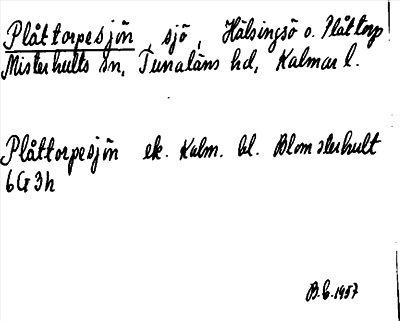 Plåttorpesjön, sjö, Hälsingsö o. Plåttorp
Misterhults sn, Tunaläns hd, Kalmar l.
Plåttorpesjön ek. Kalm. bl. Blomsterhult
6G3h
B.C. 1957